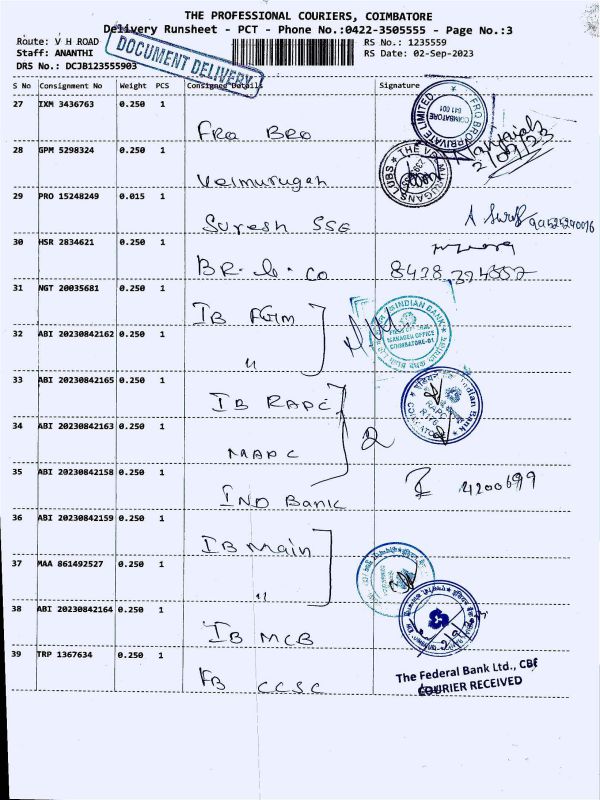 THE PROFESSIONAL COURIERS, COIMBATORE
Delivery Runsheet - PCT - Phone No.:0422-3505555 - Page No.:3
Route: V H ROAD
RS No.: 1235559
Staff: ANANTHI
RS Date: 02-Sep-2023
DRS No.: DCJB123555903
DOCUMENT DELIVERY
S No Consignment No Weight PCS Consigned Details Signature
27 IXM 3436763 0.250 1
FRQ BRO
FRQ BRO PRIVATE LIMITED
COIMBATORE
641 001
28 GPM 5298324 0.250 1
Velmurugan
29 PRO 15248249 0.015 1
Suresh SSE
30 HSR 2834621 0.250 1
31 NGT 20035681 0.250 1
IB FGM
INDIAN BANK
MANAGER OFFICE
COIMBATORE-01
32 ABI 20230842162 0.250 1
"
33 ABI 20230842165 0.250 1
IB RAPC
Indian Bank
RAPC
34 ABI 20230842163 0.250 1
MAPC
2
35 ABI 20230842158 0.250 1
IND Bank
4200699
36 ABI 20230842159 0.250 1
IB Main
37 MAA 861492527 0.250 1
"
38 ABI 20230842164 0.250 1
IB MCB
39 TRP 1367634 0.250 1
FB CCSC
The Federal Bank Ltd., CBE
COURIER RECEIVED